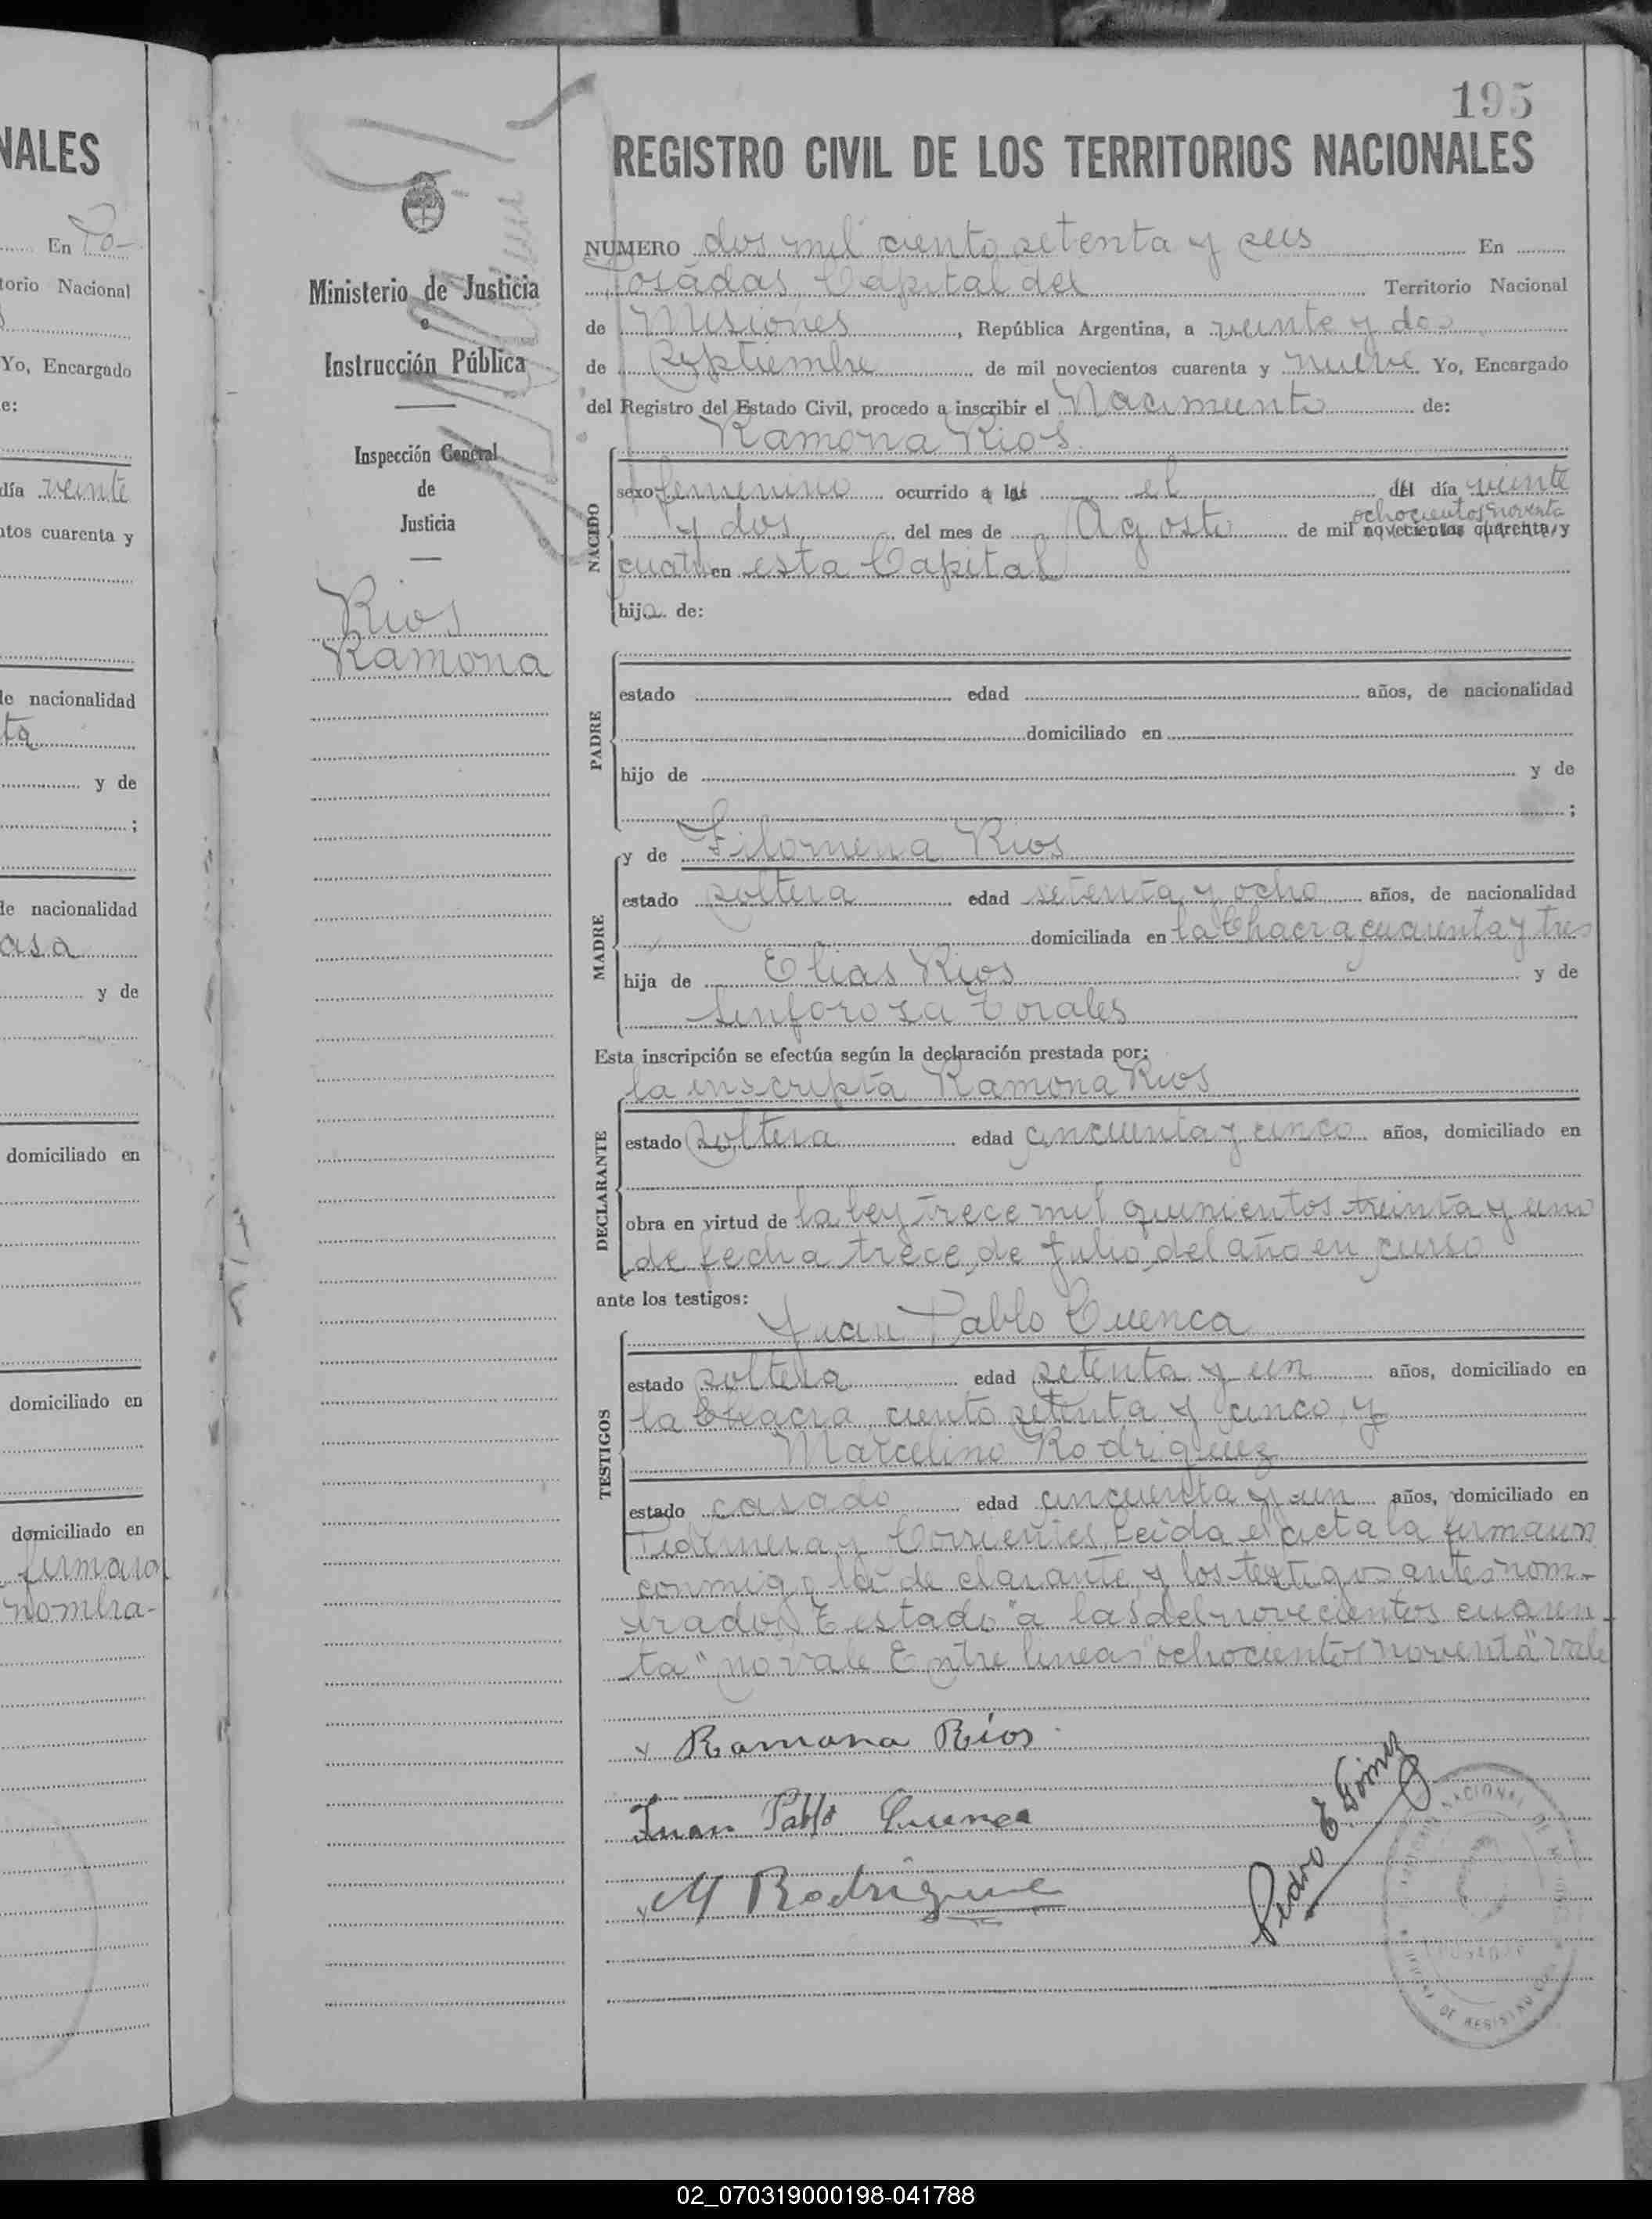 NALES
En Po-
torio Nacional
Yo, Encargado
e:
día veinte
ntos cuarenta y
de nacionalidad
ta
y de
;
de nacionalidad
asa
y de
domiciliado en
domiciliado en
domiciliado en
firmaron
nombra-
Ministerio de Justicia
e
Instrucción Pública
Inspección General
de
Justicia
Rios
Ramona
195
REGISTRO CIVIL DE LOS TERRITORIOS NACIONALES
NUMERO dos mil ciento setenta y seis En
Posadas Capital del Territorio Nacional
de Misiones, República Argentina, a veinte y dos
de Septiembre de mil novecientos cuarenta y nueve Yo, Encargado
del Registro del Estado Civil, procedo a inscribir el Nacimiento de:
Ramona Rios
NACIDO
sexo femenino ocurrido a las el del día veinte
ochocientos noventa
y dos del mes de Agosto de mil novecientos cuarenta y
cuatro en esta Capital
hija de:
PADRE
estado edad años, de nacionalidad
domiciliado en
hijo de y de
;
MADRE
y de Filomena Rios
estado soltera edad setenta y ocho años, de nacionalidad
domiciliada en la Chacra cuarenta y tres
hija de Elias Rios y de
Sinforoza Torales
Esta inscripción se efectúa según la declaración prestada por:
la inscripta Ramona Rios
DECLARANTE
estado soltera edad cincuenta y cinco años, domiciliado en
obra en virtud de la Ley trece mil quinientos treinta y uno
de fecha trece de Julio del año en curso
ante los testigos:
Juan Pablo Cuenca
TESTIGOS
estado soltera edad setenta y un años, domiciliado en
la Chacra ciento setenta y cinco y
Marcelino Rodriguez
estado casado edad cincuenta y un años, domiciliado en
Pedernera y Corrientes Leida el acta la firmaron
conmigo la declarante y los testigos antes nom-
brados Testado "a las del novecientos cuaren-
ta" no vale Entre lineas "ochocientos noventa" vale
x Ramona Ríos
Juan Pablo Cuenca
x M Rodriguez
Pedro E. Gómez
02_070319000198-041788